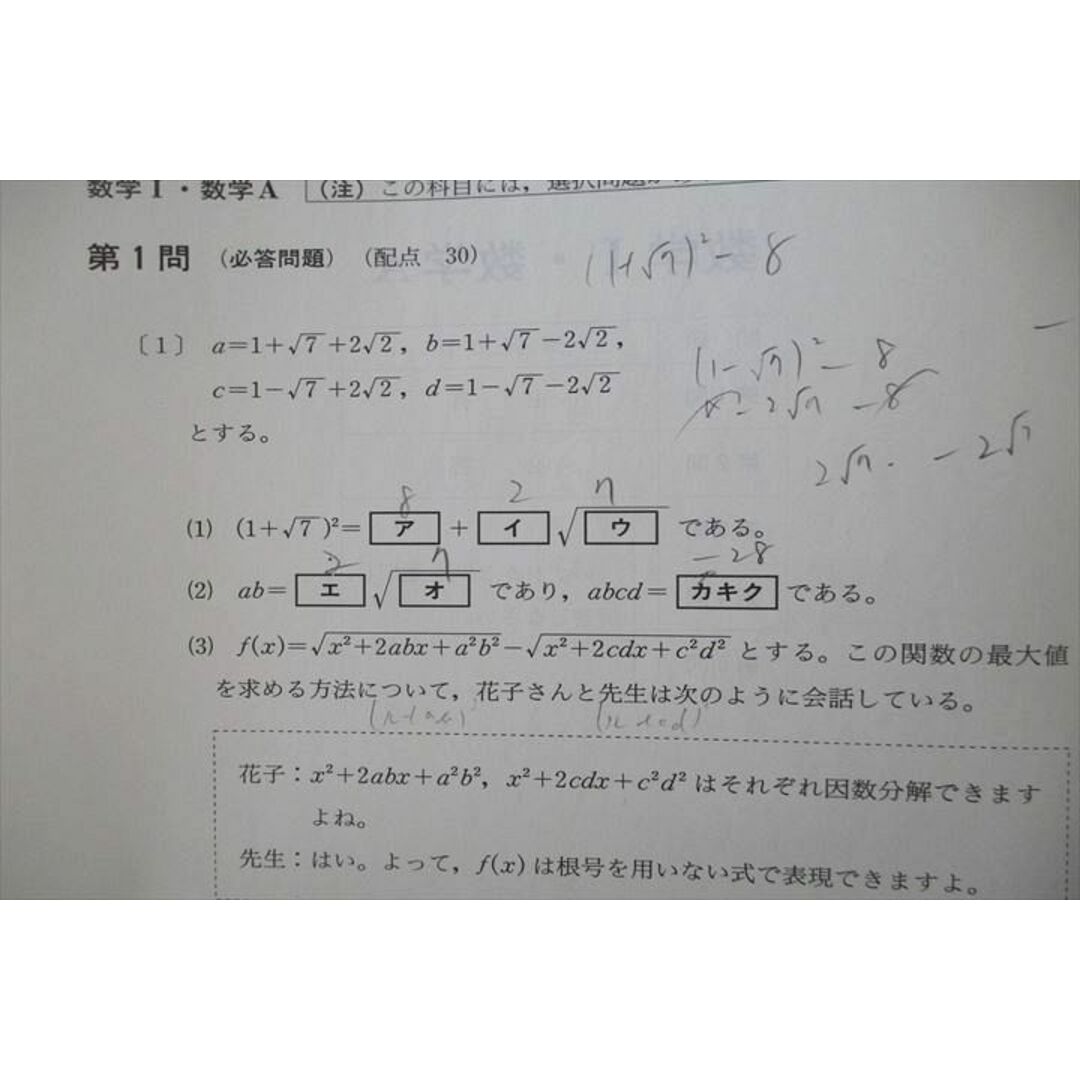 数学Ⅰ・数学A （注）この科目には，選択問題が
第1問 （必答問題）（配点 30）
(1+√7)² − 8
〔1〕 a=1+√7+2√2，b=1+√7−2√2，
(1−√7)² − 8
c=1−√7+2√2，d=1−√7−2√2
−2√7 −8
とする。
2√7・ −2√7
8 2 7
(1) (1+√7)²= ア + イ √ウ である。
2 7 −28
(2) ab= エ √オ であり，abcd= カキク である。
(3) f(x)=√x²+2abx+a²b²−√x²+2cdx+c²d² とする。この関数の最大値
を求める方法について，花子さんと先生は次のように会話している。
(x+ab)² (x+cd)²
花子：x²+2abx+a²b²，x²+2cdx+c²d² はそれぞれ因数分解できます
よね。
先生：はい。よって，f(x) は根号を用いない式で表現できますよ。